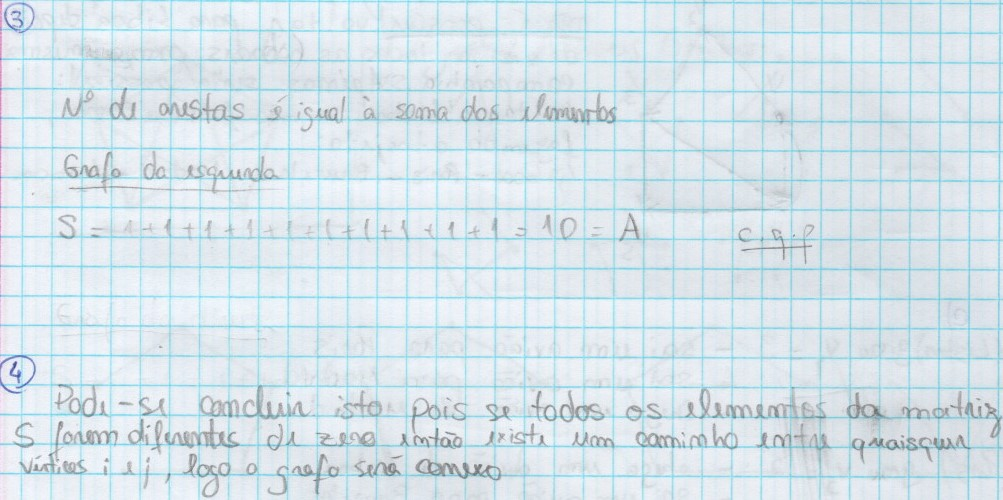 3
Nº de arestas é igual à soma dos elementos
Grafo da esquerda
S = 1+1+1+1+1+1+1+1+1+1 = 10 = A c.q.p
4
Pode-se concluir isto pois se todos os elementos da matriz
S forem diferentes de zero então existe um caminho entre quaisquer
vértices i e j, logo o grafo será conexo